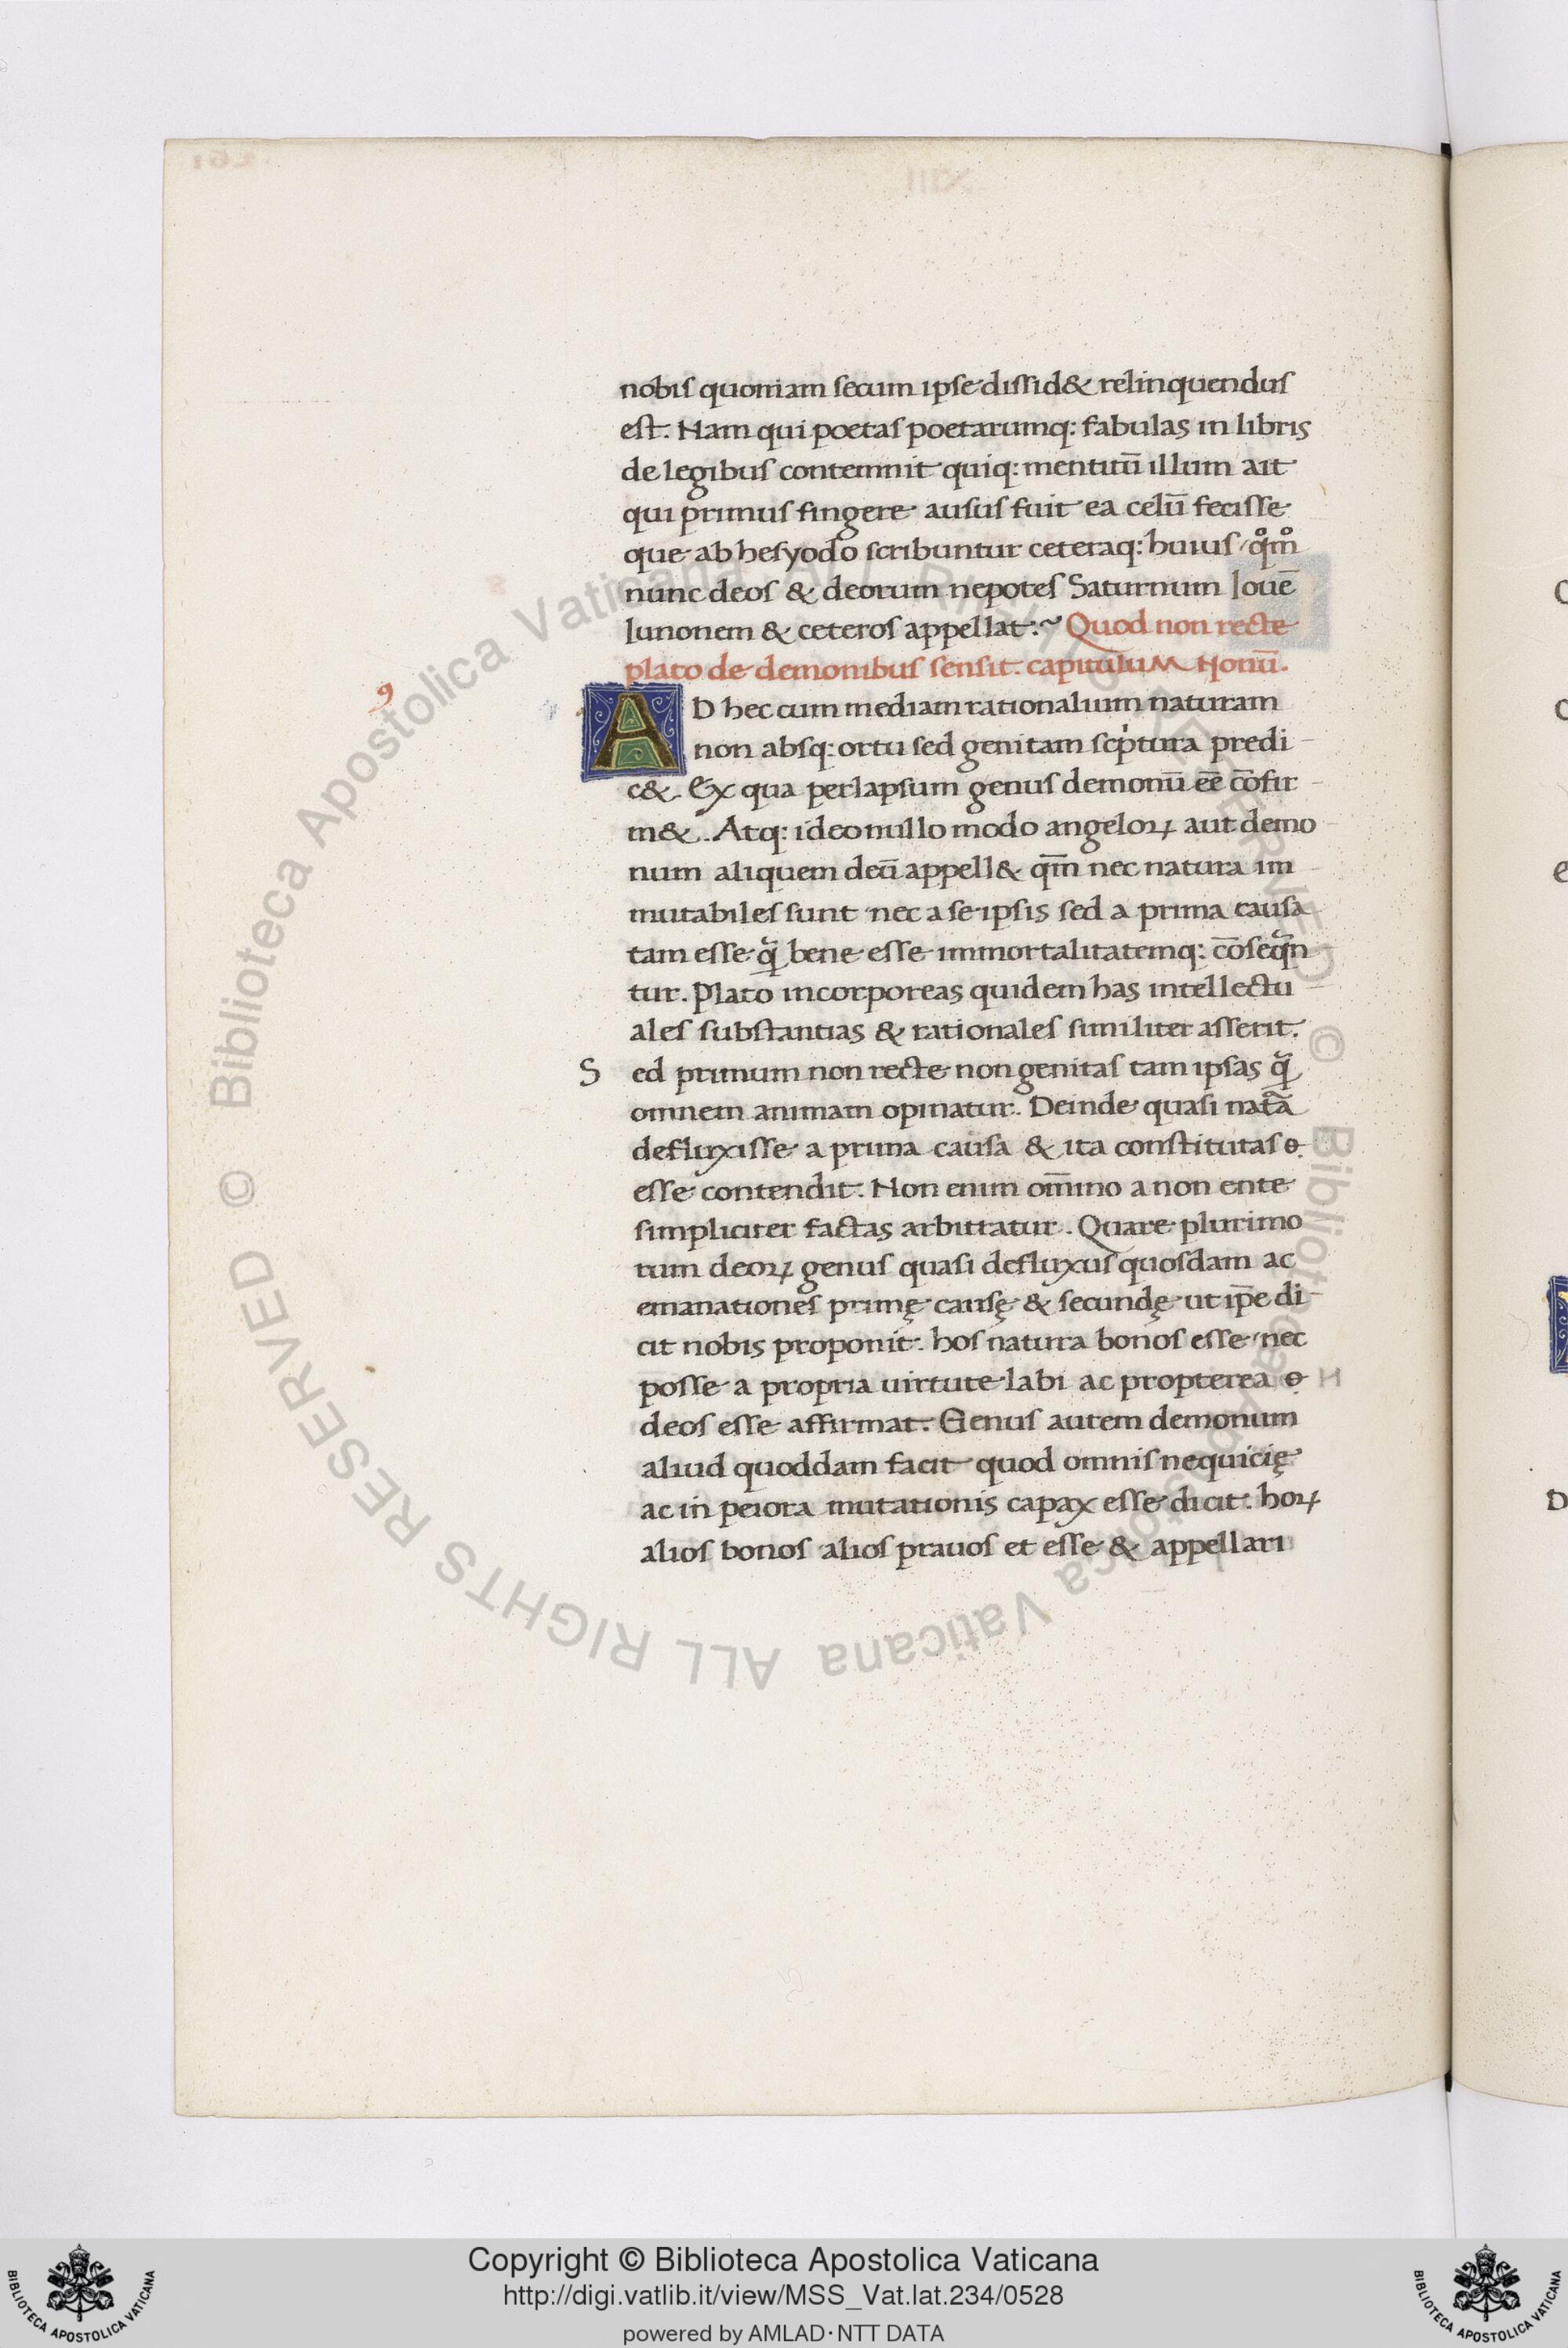 nobis quoniam secum ipse dissid& relinquendus
est. Nam qui poetas poetarumq: fabulas in libris
de legibus contemnit quiq: mentitū illum ait
qui primus fingere ausus fuit ea celū fecisse
que ab hesyodo scribuntur ceteraq: huius / qͦmͦ
nunc deos & deorum nepotes Saturnum Iouē
Iunonem & ceteros appellat:~ Quod non recte
plato de demonibus sensit. capitulum Nonū.
9
AD hec cum mediam rationalium naturam
non absq: ortu sed genitam scṗtura predi-
c&. Ex qua perlapsum genus demonū eē cōfir-
m&. Atq: ideo nullo modo angeloꝝ aut demo-
num aliquem deū appell& qm̄ nec natura im-
mutabiles sunt nec a se ipsis sed a prima causa
tam esse qᷓ bene esse immortalitatemq: cōseqūn-
tur. Plato incorporeas quidem has intellectu-
ales substantias & rationales similiter asserit.
Sed primum non recte non genitas tam ipsas qᷓ
omnem animam opinatur. Deinde quasi natᷓa
defluxisse a prima causa & ita constitutas e.
esse contendit. Non enim om̄ino a non ente
simpliciter factas arbitratur. Quare plurimo
rum deoꝝ genus quasi defluxus quosdam ac
emanationes primę causę & secundę ut ip̄e di-
cit nobis proponit. hos natura bonos esse / nec
posse a propria uirtute labi ac propterea e
deos esse affirmat. Genus autem demonum
aliud quoddam facit quod omnis nequicię
ac in peiora mutationis capax esse dicit. hoꝝ
alios bonos alios prauos et esse & appellari
Copyright © Biblioteca Apostolica Vaticana
http://digi.vatlib.it/view/MSS_Vat.lat.234/0528
powered by AMLAD·NTT DATA
BIBLIOTECA APOSTOLICA VATICANA
BIBLIOTECA APOSTOLICA VATICANA
© Biblioteca Apostolica Vaticana ALL RIGHTS RESERVED
© Biblioteca Apostolica Vaticana ALL RIGHTS RESERVED